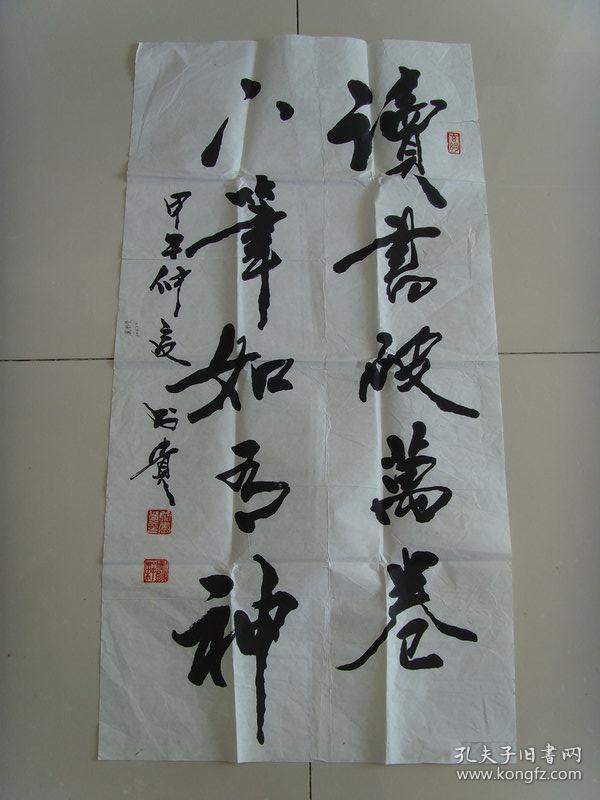 讀書破萬卷
下筆如有神
甲午仲夏
孔夫子旧书网
www.kongfz.com